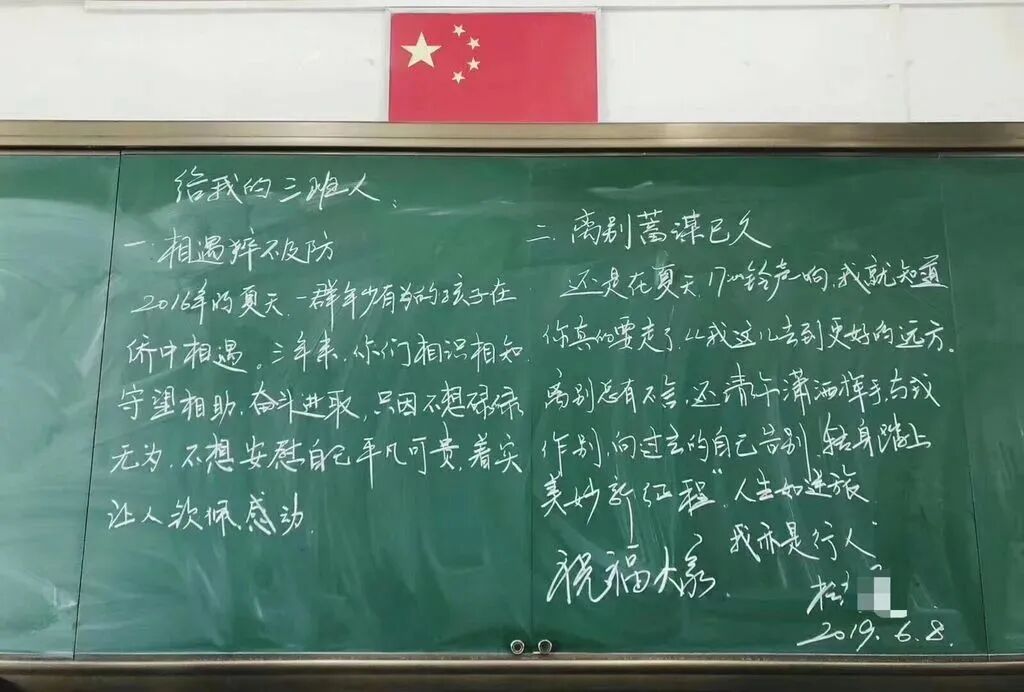 给我的三班人：
一.相遇猝不及防
2016年的夏天，一群年少有为的孩子在
侨中相遇。三年来，你们相识相知，
守望相助，奋斗进取，只因不想碌碌
无为，不想安慰自己平凡可贵，着实
让人钦佩、感动.
二.离别蓄谋已久
还是在夏天，17:00铃声响，我就知道
你真的要走了，从我这儿去到更好的远方。
离别总有不舍，还请你潇洒挥手，与我
作别，向过去的自己告别，转身踏上
美妙新征程“人生如逆旅，
我亦是行人”
祝福大家
2019.6.8.